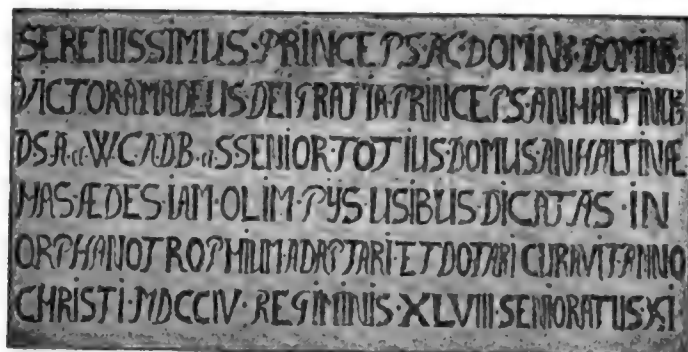 SERENISSIMUS·PRINCEPS·AC·DOMINUS·DOMINUS
VICTOR AMADEUS·DEI GRATIA PRINCEPS·ANHALTINUS
D S A et W·C A D B et S SENIOR TOTIUS DOMUS ANHALTINÆ
HAS ÆDES·IAM·OLIM·PYS·USIBUS DICATAS·IN
ORPHANOTROPHIUM ADAPTARI·ET DOTARI CURAVIT ANNO
CHRISTI·MDCCIV·REGIMINIS·XLVIII·SENIORATUS·XI·